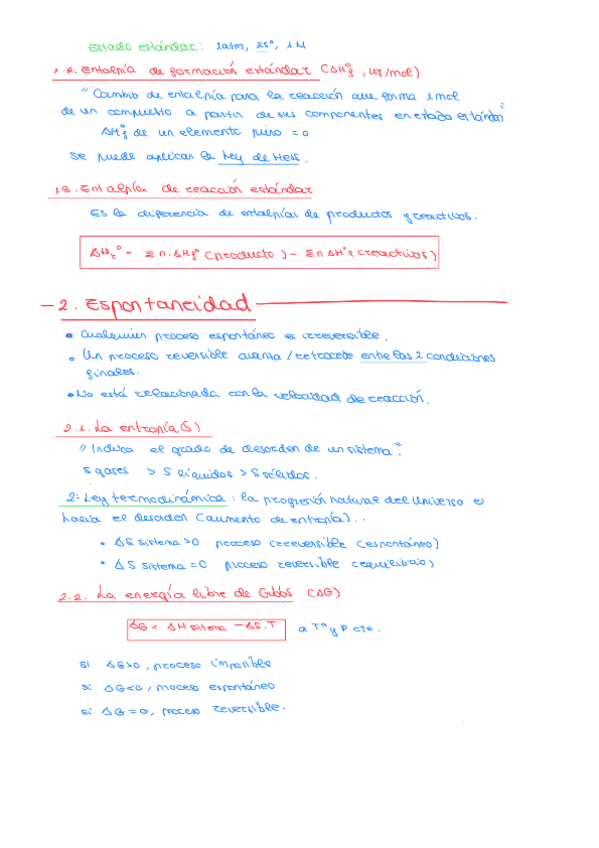 Estado estándar: 1atm, 25°, 1M
1.2. Entalpía de formación estándar (ΔH°f, kJ/mol)
"Cambio de entalpía para la reacción que forma 1 mol
de un compuesto a partir de sus componentes en estado estándar"
ΔH°f de un elemento puro = 0
Se puede aplicar la Ley de Hess.
1.3. Entalpías de reacción estándar
Es la diferencia de entalpías de productos y reactivos.
ΔHr° = Σ n. ΔHf° (producto) - Σ n ΔH°f (reactivos)
- 2. Espontaneidad
• Cualquier proceso espontáneo es irreversible.
• Un proceso reversible avanza / retrocede entre las 2 condiciones
finales.
• No está relacionada con la velocidad de reacción.
2.1. La entropía (S)
"Indica el grado de desorden de un sistema".
S gases > S líquidos > S sólidos.
2ª Ley termodinámica: la progresión natural del Universo es
hacia el desorden (aumento de entropía)..
• ΔS sistema > 0 proceso irreversible (espontáneo)
• ΔS sistema = 0 proceso reversible (equilibrio)
2.2. La energía libre de Gibbs (ΔG)
ΔG = ΔH sistema - ΔS.T a Tª y P cte.
si ΔG>0, proceso imposible
si ΔG<0, proceso espontáneo
si ΔG=0, proceso reversible.